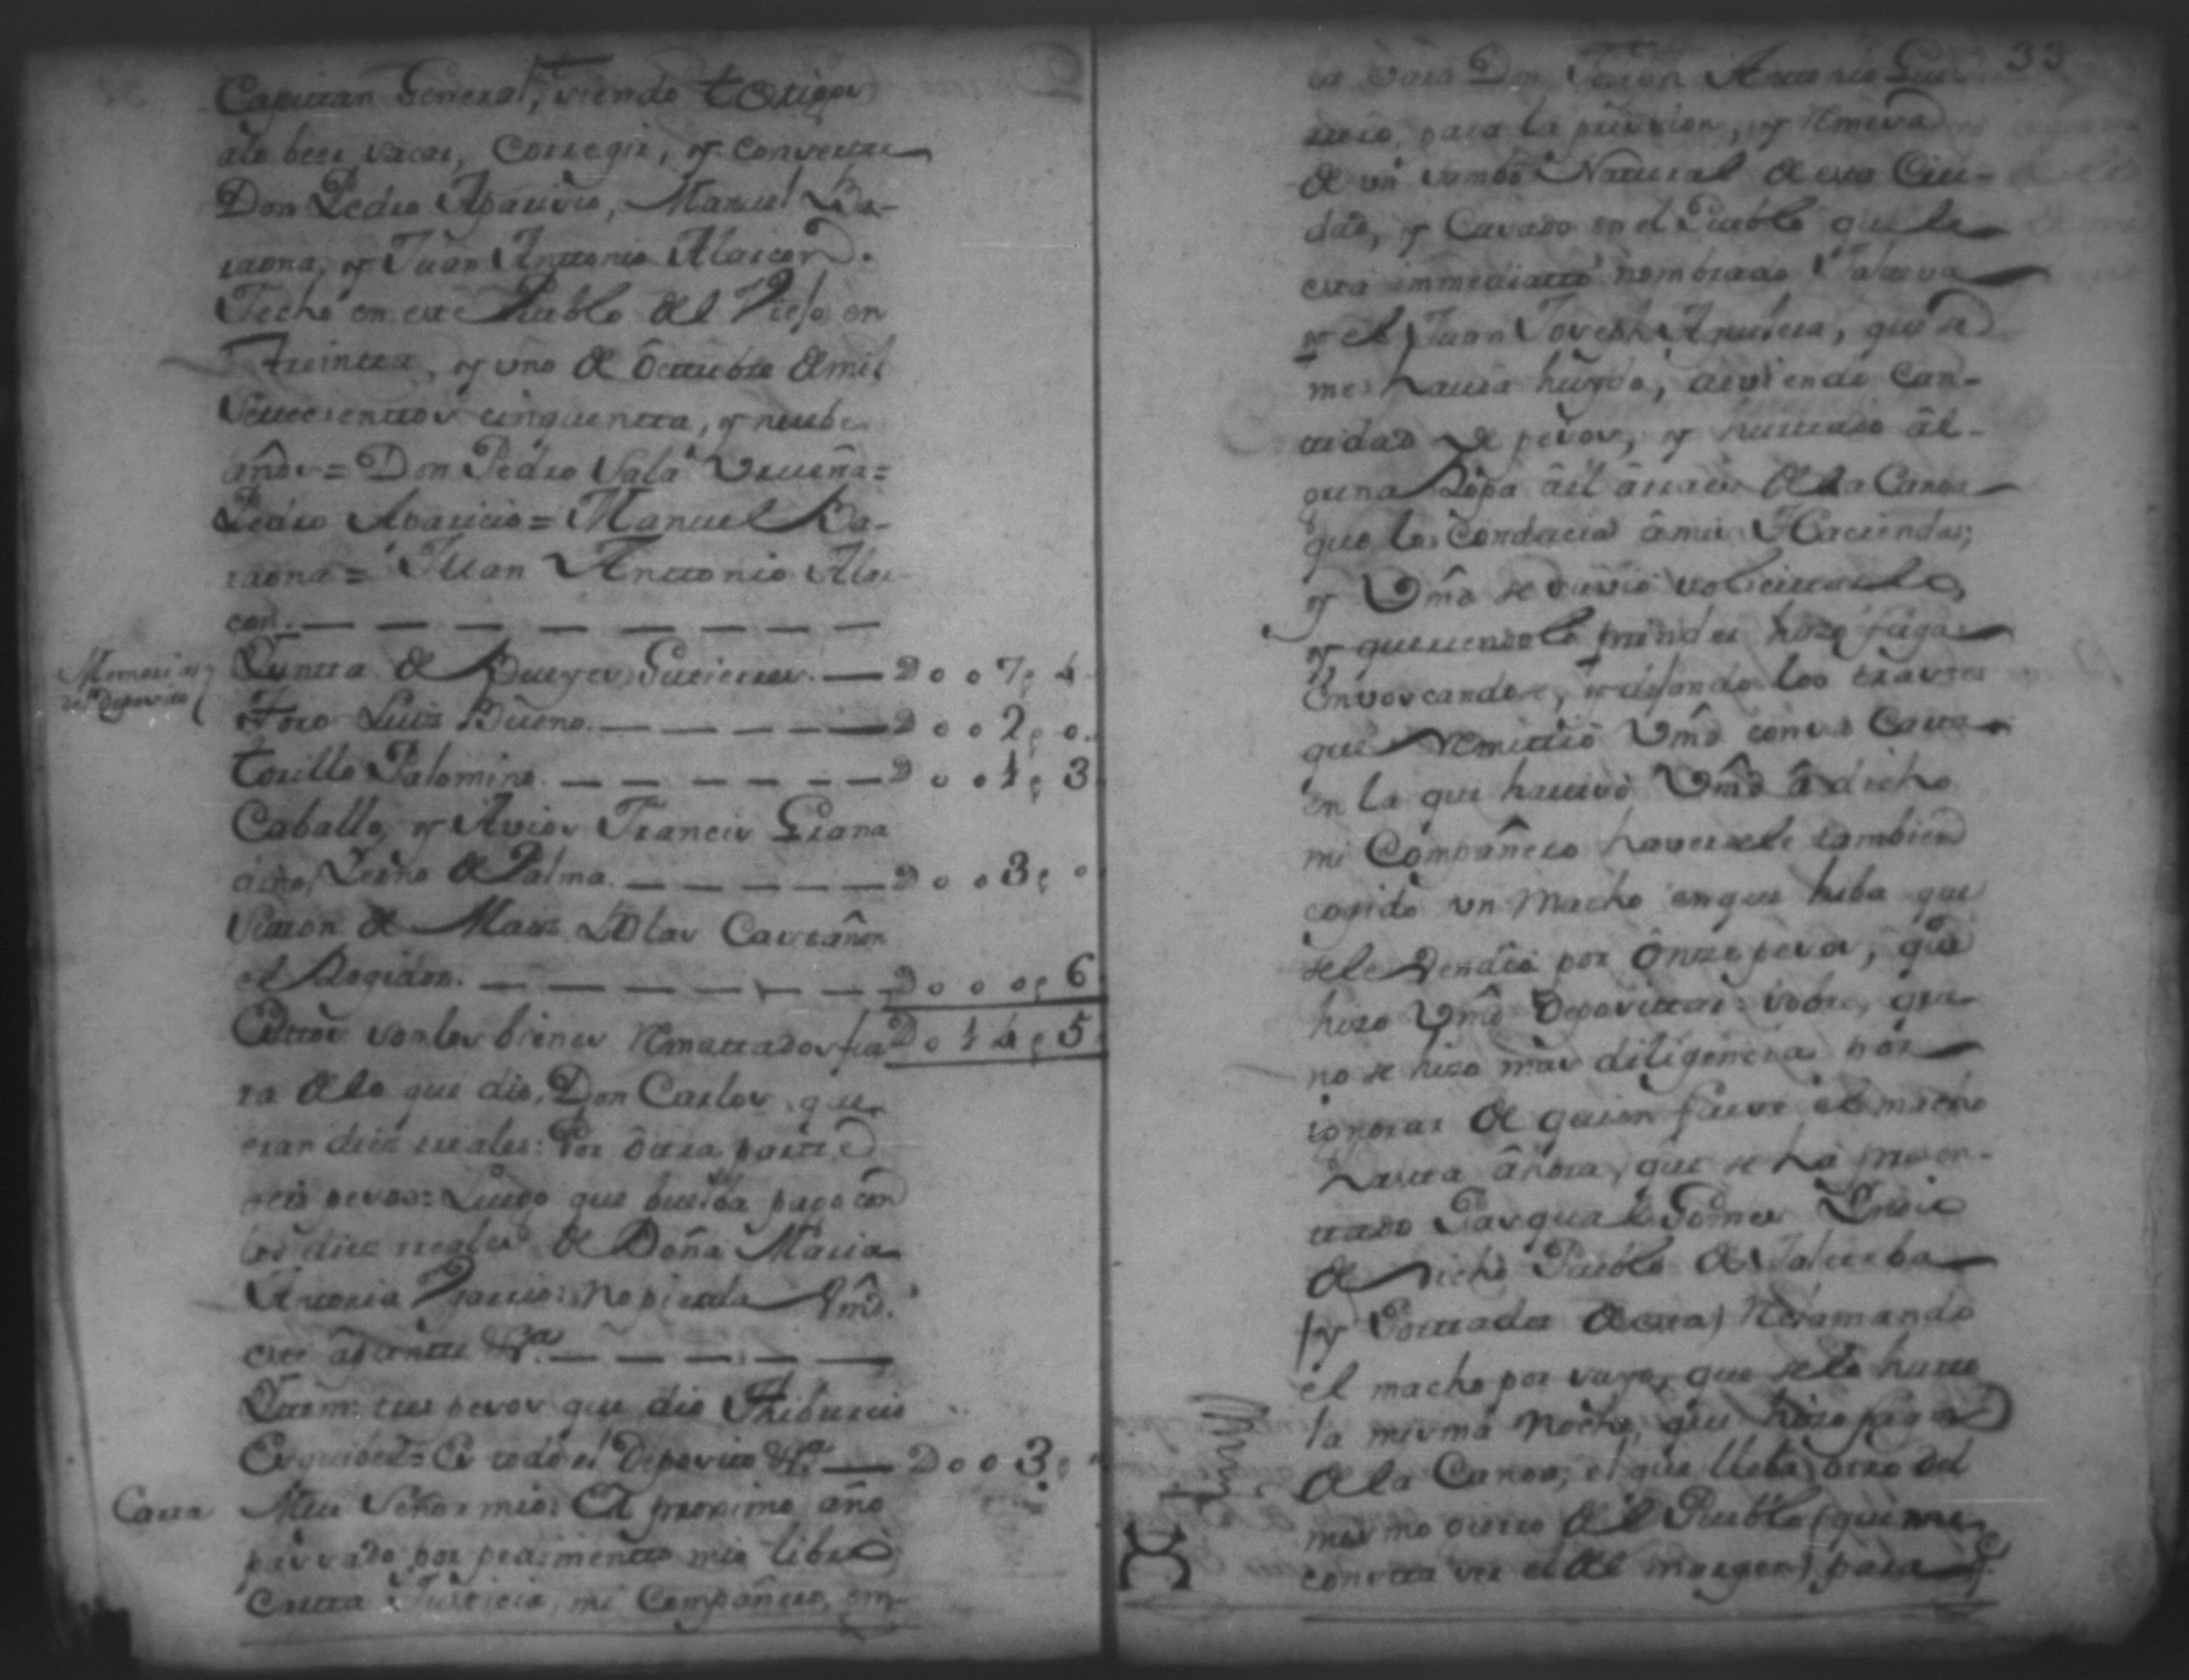 Capittan General, siendo testigos
a lo beer sacar, corregir, y conzertar
Don Pedro Aparizio, Manuel Ba-
raona, y Juan Anttonio Alarcon.
Fecho en este Pueblo del Viejo en
treintta, y uno de Octtubre de mil
settecienttos cinquentta, y nuebe
años = Don Pedro Sala Urueña =
Pedro Aparicio = Manuel Ba-
raona = Juan Anttonio Alar-
con.
Memoria
del Deposito
Yuntta de Bueyes Gutierres. — D007,4
Toro Luis Bueno. — D002,0.
torillo Palomino. — D001,3
Caballo, y Avios Francisco Grana
dino, Leño de Palma. — D003,0
Sitton de Maiz Blas Castañon
el Regidor. — D000,6
Esttos son los bienes Remattados fue D014,5
ra de lo que dio, Don Carlos que
eran diez reales: Por ottra partte
seis pesos: Luego que buelba pago con
los diez reales de Doña Maria
Anttonia : no pierda Vmd.
este apuntte &a.
Yttem: tres pesos que dio Thiburcio
Esquibel = Es todo el Deposito &a — D003,
Cartta
Mui Señor mio: El proximo año
passado por pedimentto mio libró
Cartta Justicia, mi Compañero, em-
33
Don Juan Anttonio
para la prission, y Remesa
de un sambo Natural de esa Ciu-
dad, y Casado en el Pueblo que le
está immediatto nombrado Jalteva
y el Juan Joseph Aguilera, que se
me havia huydo, deviendo Can-
tidad de pesos, y hurttado al-
guna Ropa ael arraes de la Canoa
que los conducia a mis Haciendas;
y Vmd se sirvió solicitarle,
y queriendolo prender hizo fuga
envoscandose, y dejando los trastes
que Remittio Vmd con su Cartta
en la que havissó Vmd a dicho
mi Compañero haversele tambien
cogido un Macho en que hiba que
se le vendió por onze pesos, que
hizo Vmd Deposittar: sobre, que
no se hizo mas diligencia por
ignorar de quien fuese el macho
hastta ahora, que se ha presen-
ttado Pasqual Gomes Yndio
de dicho Pueblo de Jalteba
(y Portador de esta) Reclamando
el macho por suyo, que se lo hurtto
la misma Noche, que hizo fuga
de la Canoa; el que lleba otro del
mismo fierro del Pueblo (que me
constta ser el del margen) para